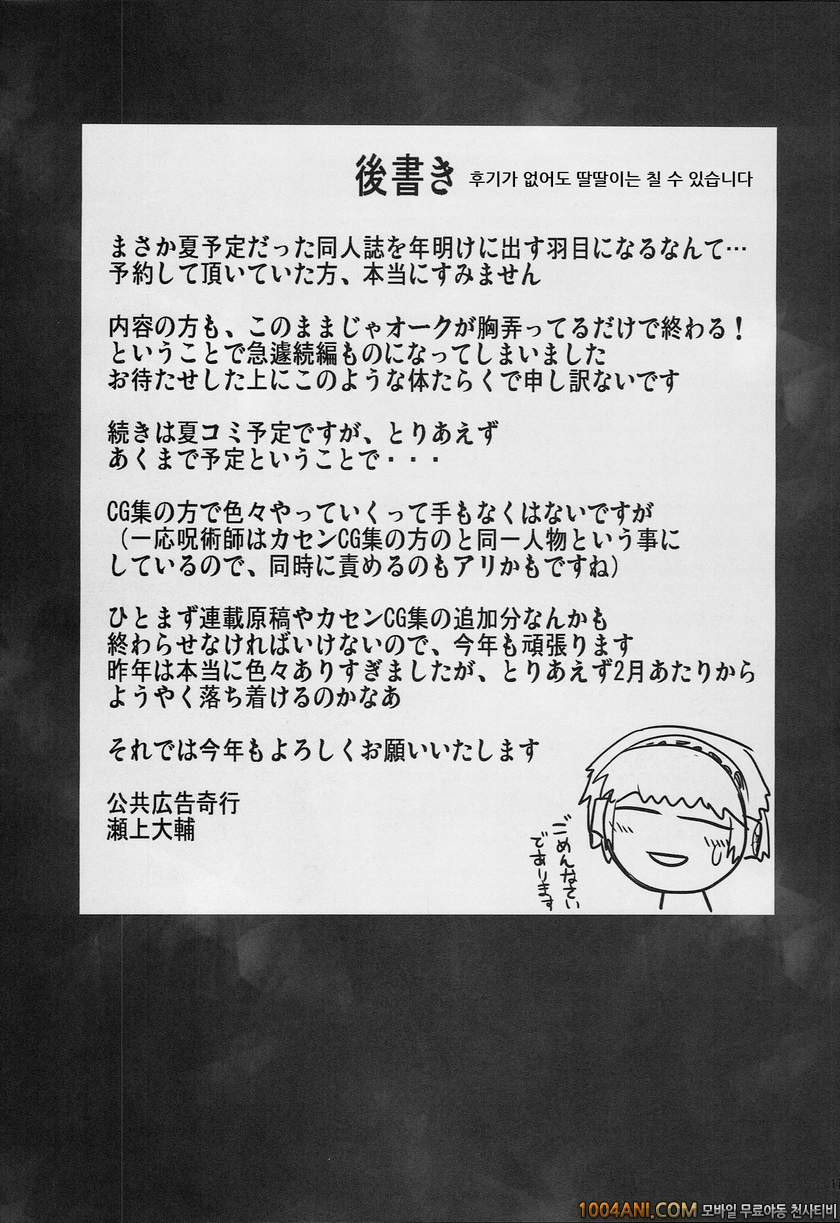 後書き 후기가 없어도 딸딸이는 칠 수 있습니다
まさか夏予定だった同人誌を年明けに出す羽目になるなんて…
予約して頂いていた方、本当にすみません
内容の方も、このままじゃオークが胸弄ってるだけで終わる！
ということで急遽続編ものになってしまいました
お待たせした上にこのような体たらくで申し訳ないです
続きは夏コミ予定ですが、とりあえず
あくまで予定ということで・・・
CG集の方で色々やっていくって手もなくはないですが
（一応呪術師はカセンCG集の方のと同一人物という事に
しているので、同時に責めるのもアリかもですね）
ひとまず連載原稿やカセンCG集の追加分なんかも
終わらせなければいけないので、今年も頑張ります
昨年は本当に色々ありすぎましたが、とりあえず2月あたりから
ようやく落ち着けるのかなあ
それでは今年もよろしくお願いいたします
公共広告奇行
瀬上大輔
ごめんなさい
であります
1004ANI.COM 모바일 무료야동 천사티비